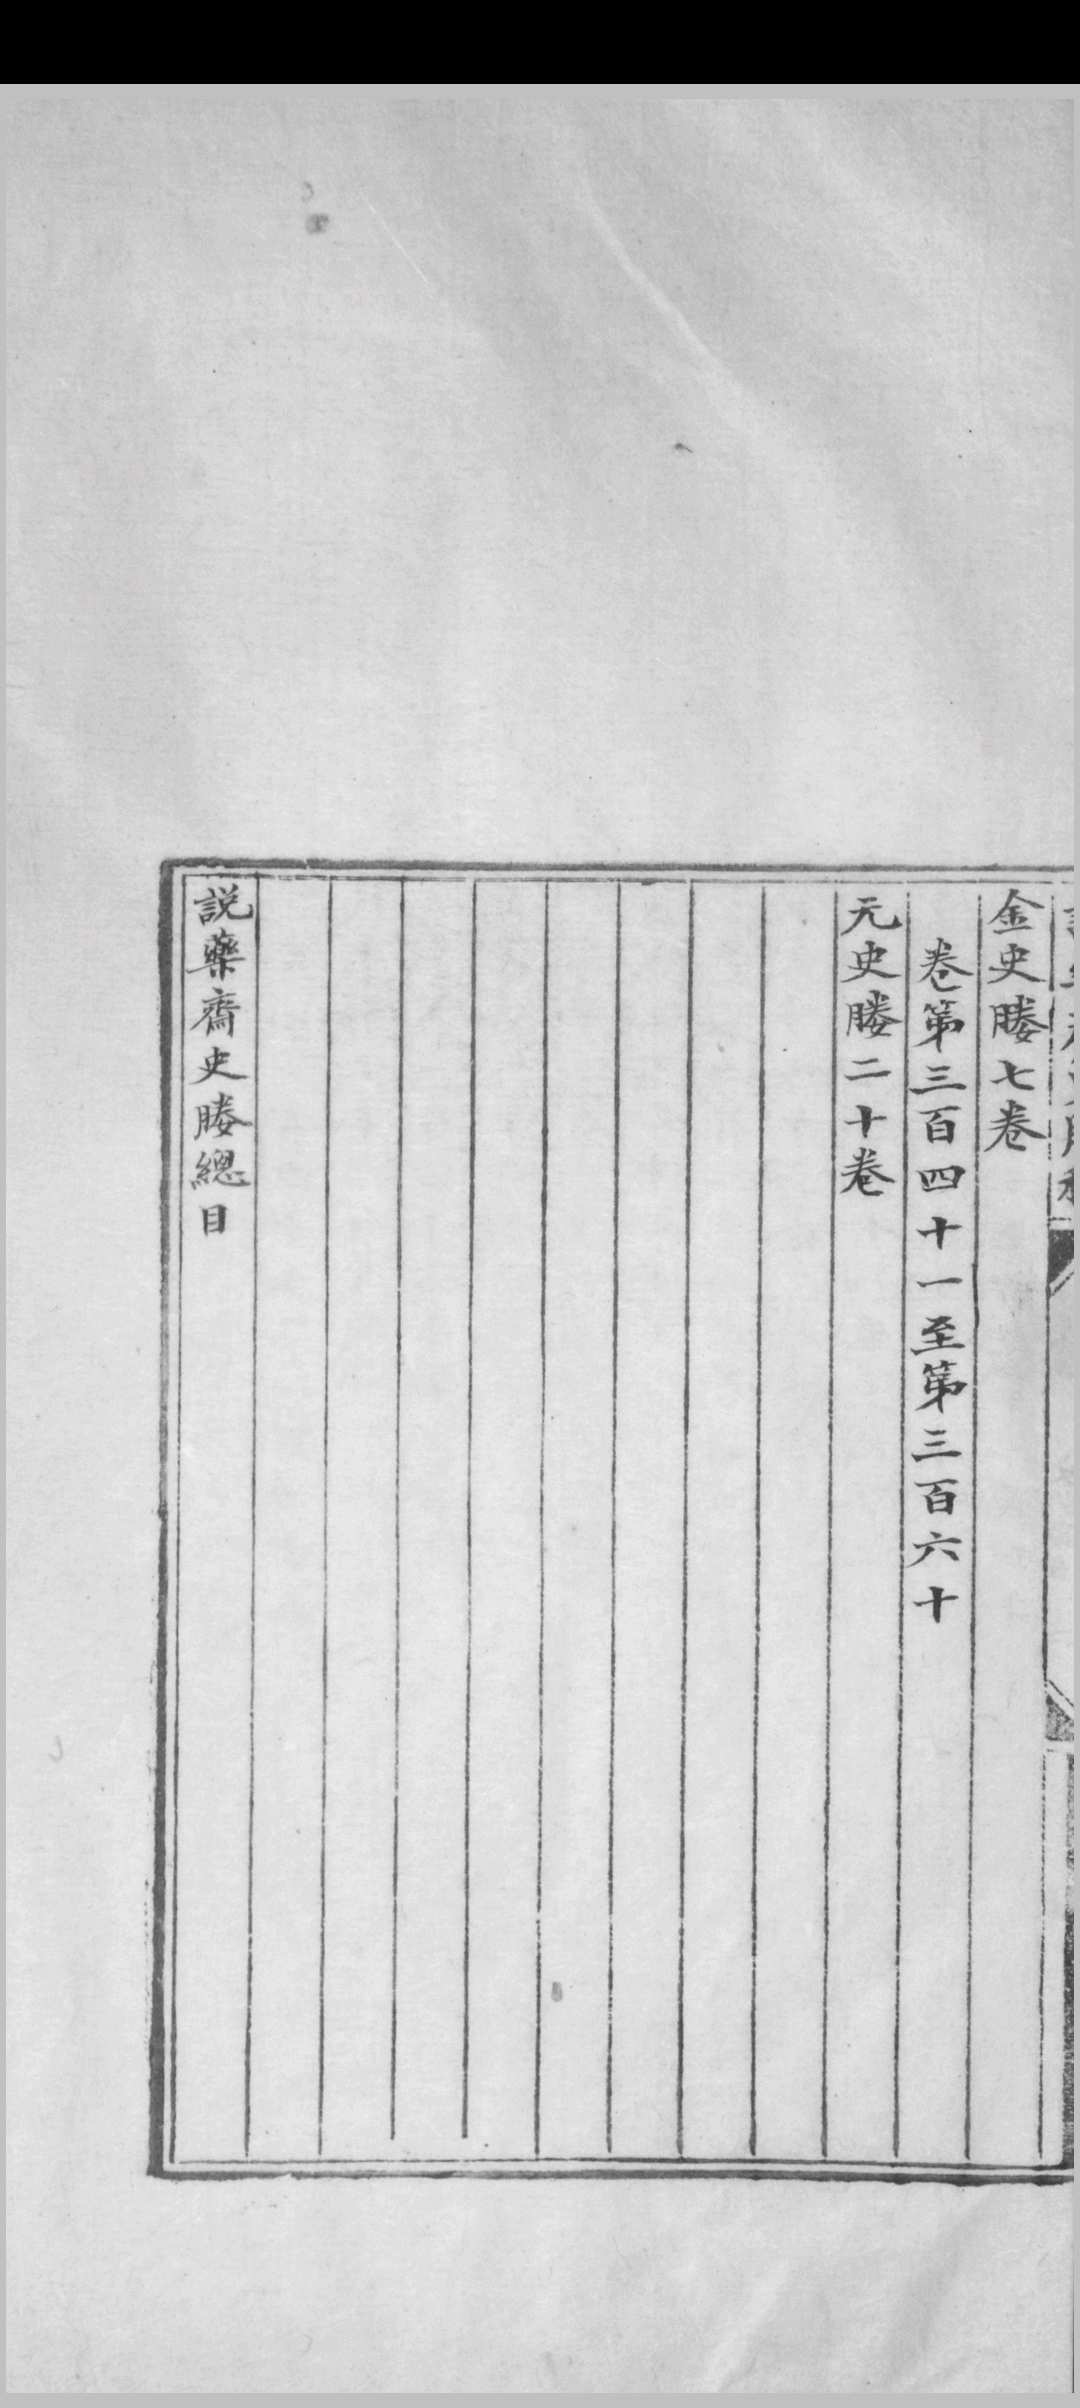 金史媵七卷
卷第三百四十一至第三百六十
元史媵二十卷
説藥齋史媵總目